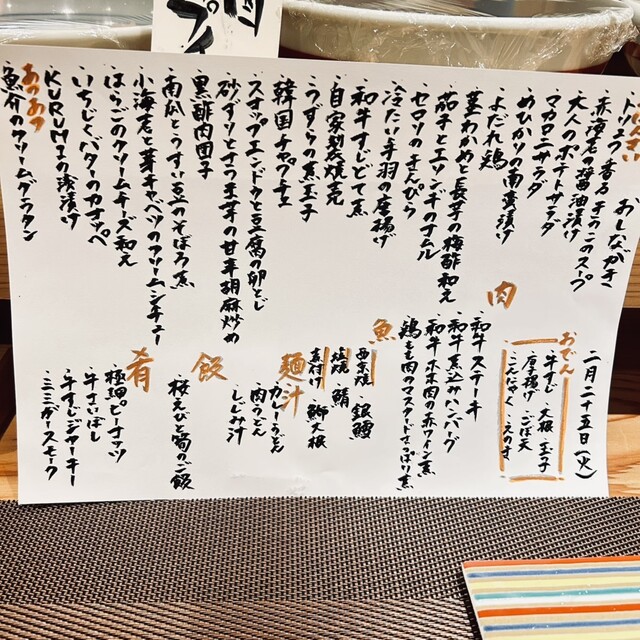 おしながき
トリュフ香るきのこのスープ
赤海老の醤油漬け
大人のポテトサラダ
マカロニサラダ
めひかりの南蛮漬け
よだれ鶏
茎わかめと長芋の梅酢和え
茄子とエリンギのナムル
セロリのきんぴら
冷たい手羽の唐揚げ
和牛すじどて煮
自家製焼売
うずらの煮玉子
韓国チャプチェ
スナップエンドウと豆腐の卵とじ
砂ずりとさつま芋の甘辛胡麻炒め
黒酢肉団子
南瓜とうすい豆のそぼろ煮
小海老と芽キャベツのクリームシチュー
はらこのクリームチーズ和え
いちじくバターのカナッペ
KURUMIの浅漬け
あつあつ
魚介のクリームグラタン
二月二十五日(火)
おでん
牛すじ 大根 玉子
厚揚げ ごぼ天
こんにゃく えのき
肉
和牛ステーキ
和牛煮込みハンバーグ
和牛ホホ肉の赤ワイン煮
鶏もも肉のマスタードさっぱり煮
魚
西京焼 銀鱈
塩焼 鯖
煮付け 鰤大根
麺汁
カレーうどん
肉うどん
しじみ汁
飯
桜えびと筍のご飯
肴
極調ピーナッツ
牛さいぼし
牛すじジャーキー
ミミガースモーク